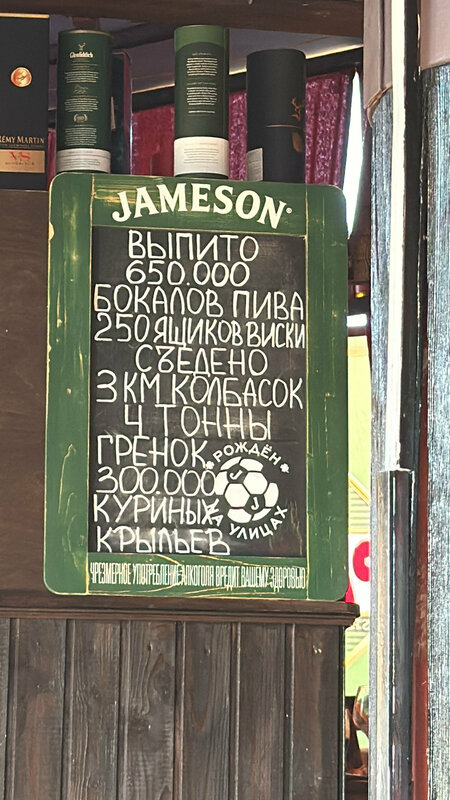 Glenfiddich
RÉMY MARTIN
VS
JAMESON
ВЫПИТО
650.000
БОКАЛОВ ПИВА
250 ЯЩИКОВ ВИСКИ
СЪЕДЕНО
3 КМ КОЛБАСОК
4 ТОННЫ
ГРЕНОК
300.000
КУРИНЫХ
КРЫЛЬЕВ
РОЖДЁН
НА УЛИЦАХ
ЧРЕЗМЕРНОЕ УПОТРЕБЛЕНИЕ АЛКОГОЛЯ ВРЕДИТ ВАШЕМУ ЗДОРОВЬЮ